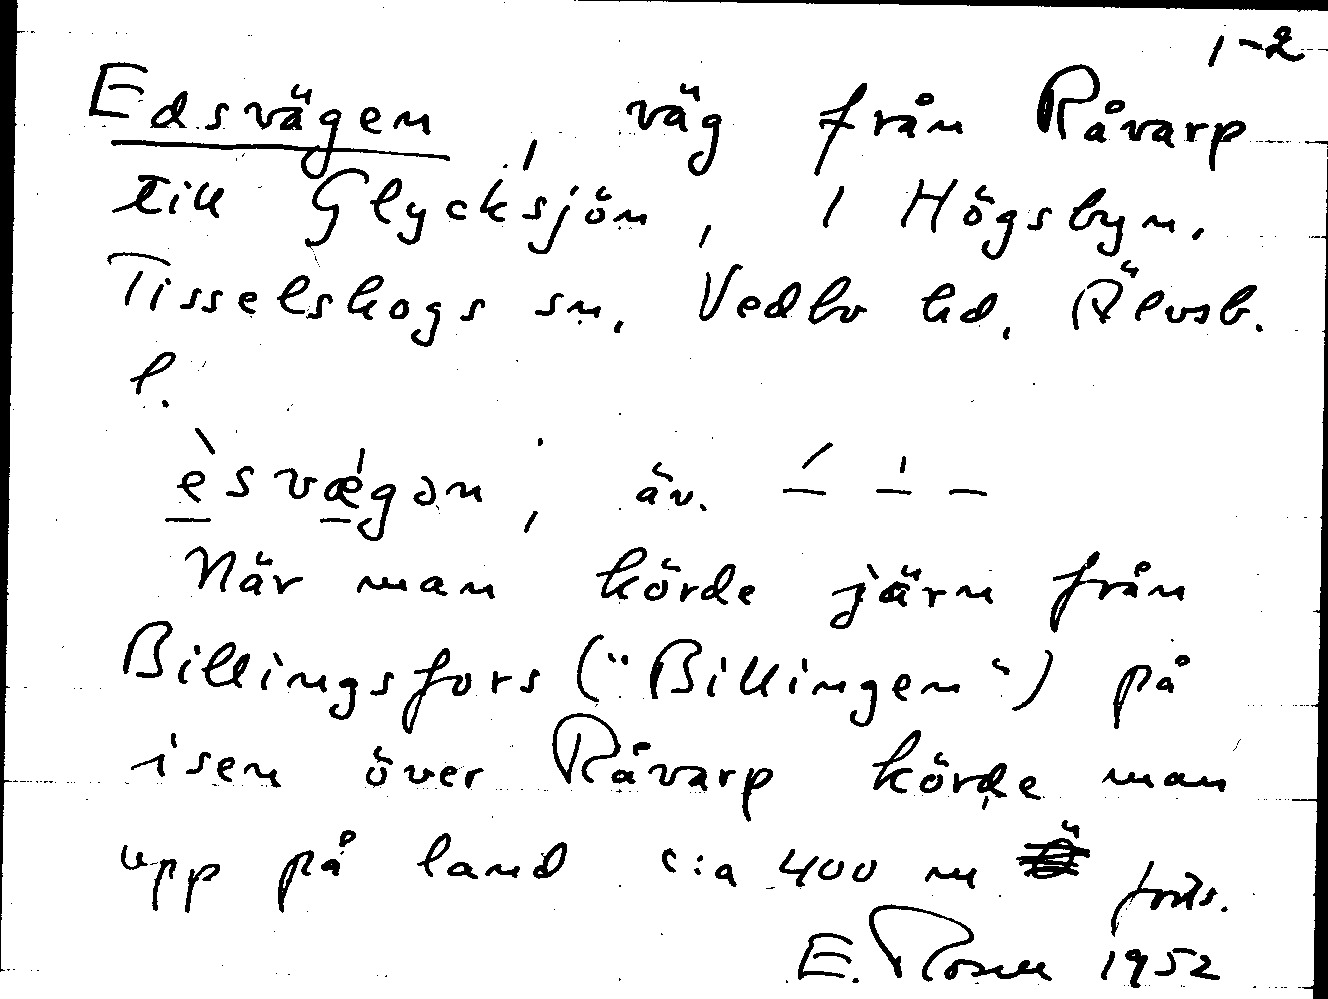 1-2
Edsvägen, väg från Råvarp
till Glycksjön, i Högsbyn.
Tisselskogs sn, Vedbo hd, Älvsb.
l.
èsvǽgən, äv. –́ –̍ –
När man körde järn från
Billingsfors ("Billingen") på
isen över Råvarp körde man
upp på land c:a 400 m forts.
E. Rosell 1952